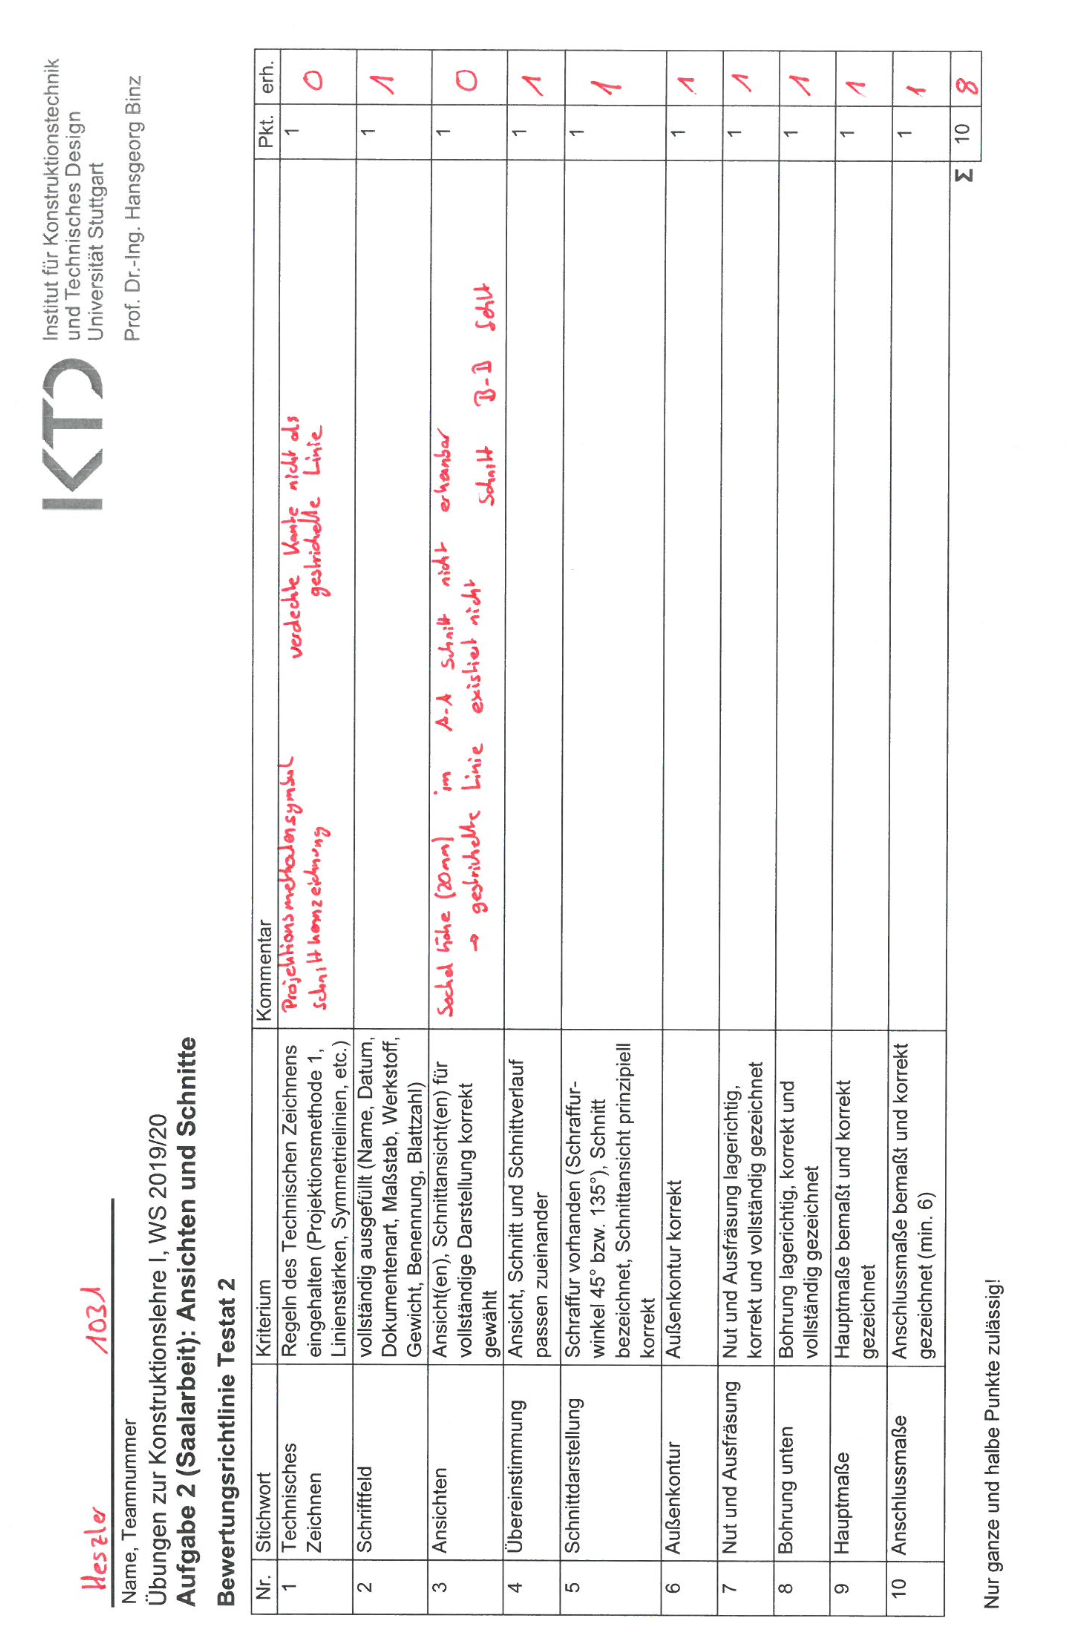 IKTD
Institut für Konstruktionstechnik
und Technisches Design
Universität Stuttgart
Prof. Dr.-Ing. Hansgeorg Binz
Heszler 1031
Name, Teamnummer
Übungen zur Konstruktionslehre I, WS 2019/20
Aufgabe 2 (Saalarbeit): Ansichten und Schnitte
Bewertungsrichtlinie Testat 2
Nr. Stichwort Kriterium Kommentar Pkt. erh.
1 Technisches Zeichnen
Regeln des Technischen Zeichnens
eingehalten (Projektionsmethode 1,
Linienstärken, Symmetrielinien, etc.)
Projektionsmethodensymbol
Schnittkennzeichnung
verdeckte Kante nicht als
gestrichelte Linie
1 0
2 Schriftfeld
vollständig ausgefüllt (Name, Datum,
Dokumentenart, Maßstab, Werkstoff,
Gewicht, Benennung, Blattzahl)
1 1
3 Ansichten
Ansicht(en), Schnittansicht(en) für
vollständige Darstellung korrekt
gewählt
Sockel höhe (20mm) im A-A Schnitt nicht erkennbar
→ gestrichelte Linie existiert nicht
Schnitt B-B fehlt
1 0
4 Übereinstimmung
Ansicht, Schnitt und Schnittverlauf
passen zueinander
1 1
5 Schnittdarstellung
Schraffur vorhanden (Schraffur-
winkel 45° bzw. 135°), Schnitt
bezeichnet, Schnittansicht prinzipiell
korrekt
1 1
6 Außenkontur Außenkontur korrekt 1 1
7 Nut und Ausfräsung
Nut und Ausfräsung lagerichtig,
korrekt und vollständig gezeichnet
1 1
8 Bohrung unten
Bohrung lagerichtig, korrekt und
vollständig gezeichnet
1 1
9 Hauptmaße
Hauptmaße bemaßt und korrekt
gezeichnet
1 1
10 Anschlussmaße
Anschlussmaße bemaßt und korrekt
gezeichnet (min. 6)
1 1
Σ 10 8
Nur ganze und halbe Punkte zulässig!